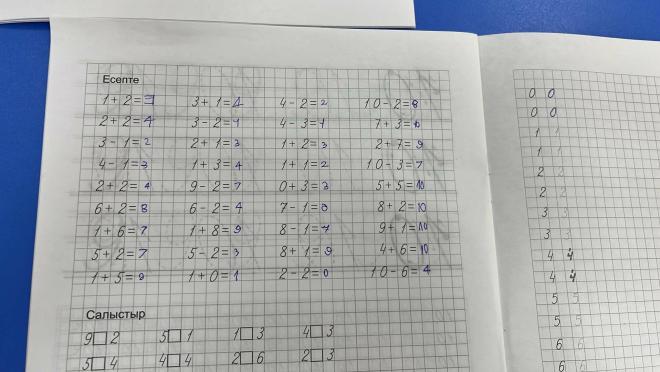 Есепте
1 + 2 = 3 3 + 1 = 4 4 - 2 = 2 10 - 2 = 8
2 + 2 = 4 3 - 2 = 1 4 - 3 = 1 7 + 3 = 10
3 - 1 = 2 2 + 1 = 3 1 + 2 = 3 2 + 7 = 9
4 - 1 = 3 1 + 3 = 4 1 + 1 = 2 10 - 3 = 7
2 + 2 = 4 9 - 2 = 7 0 + 3 = 3 5 + 5 = 10
6 + 2 = 8 6 - 2 = 4 7 - 1 = 8 + 2 = 10
1 + 6 = 7 1 + 8 = 9 8 - 1 = 7 9 + 1 = 10
5 + 2 = 7 5 - 2 = 3 8 + 1 = 9 4 + 6 = 10
1 + 5 = 1 + 0 = 1 2 - 2 = 0 10 - 6 = 4
Салыстыр
9 □ 2 5 □ 1 1 □ 3 4 □ 3
5 □ 4 4 □ 4 2 □ 6 2 □ 3
0 0
0 0
1 1
1 1
2 2
2 2
3 3
3 3
4 4
4 4
5 5
5 5
6 6
6 6